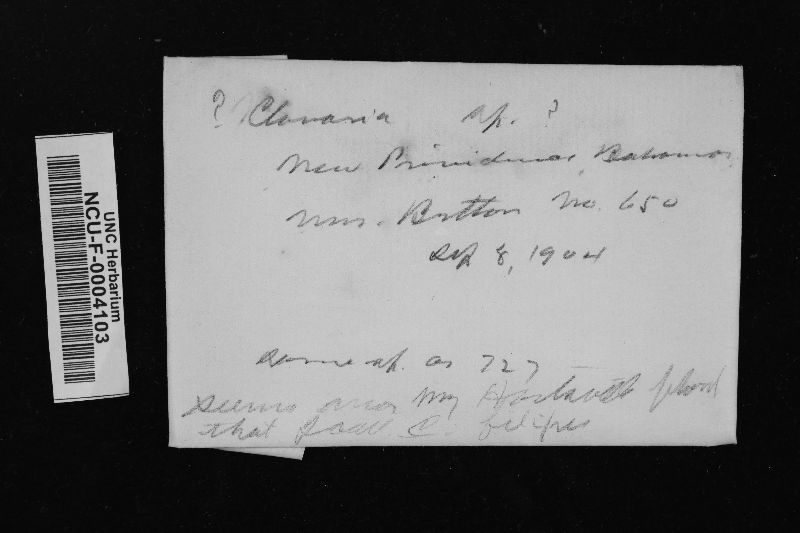 ? Clavaria sp. ?
New Providence, Bahamas
Mrs. Britton No. 650
Sep 8, 1904
same sp. as 727
seems near my
that I call C.
UNC Herbarium
NCU-F-0004103